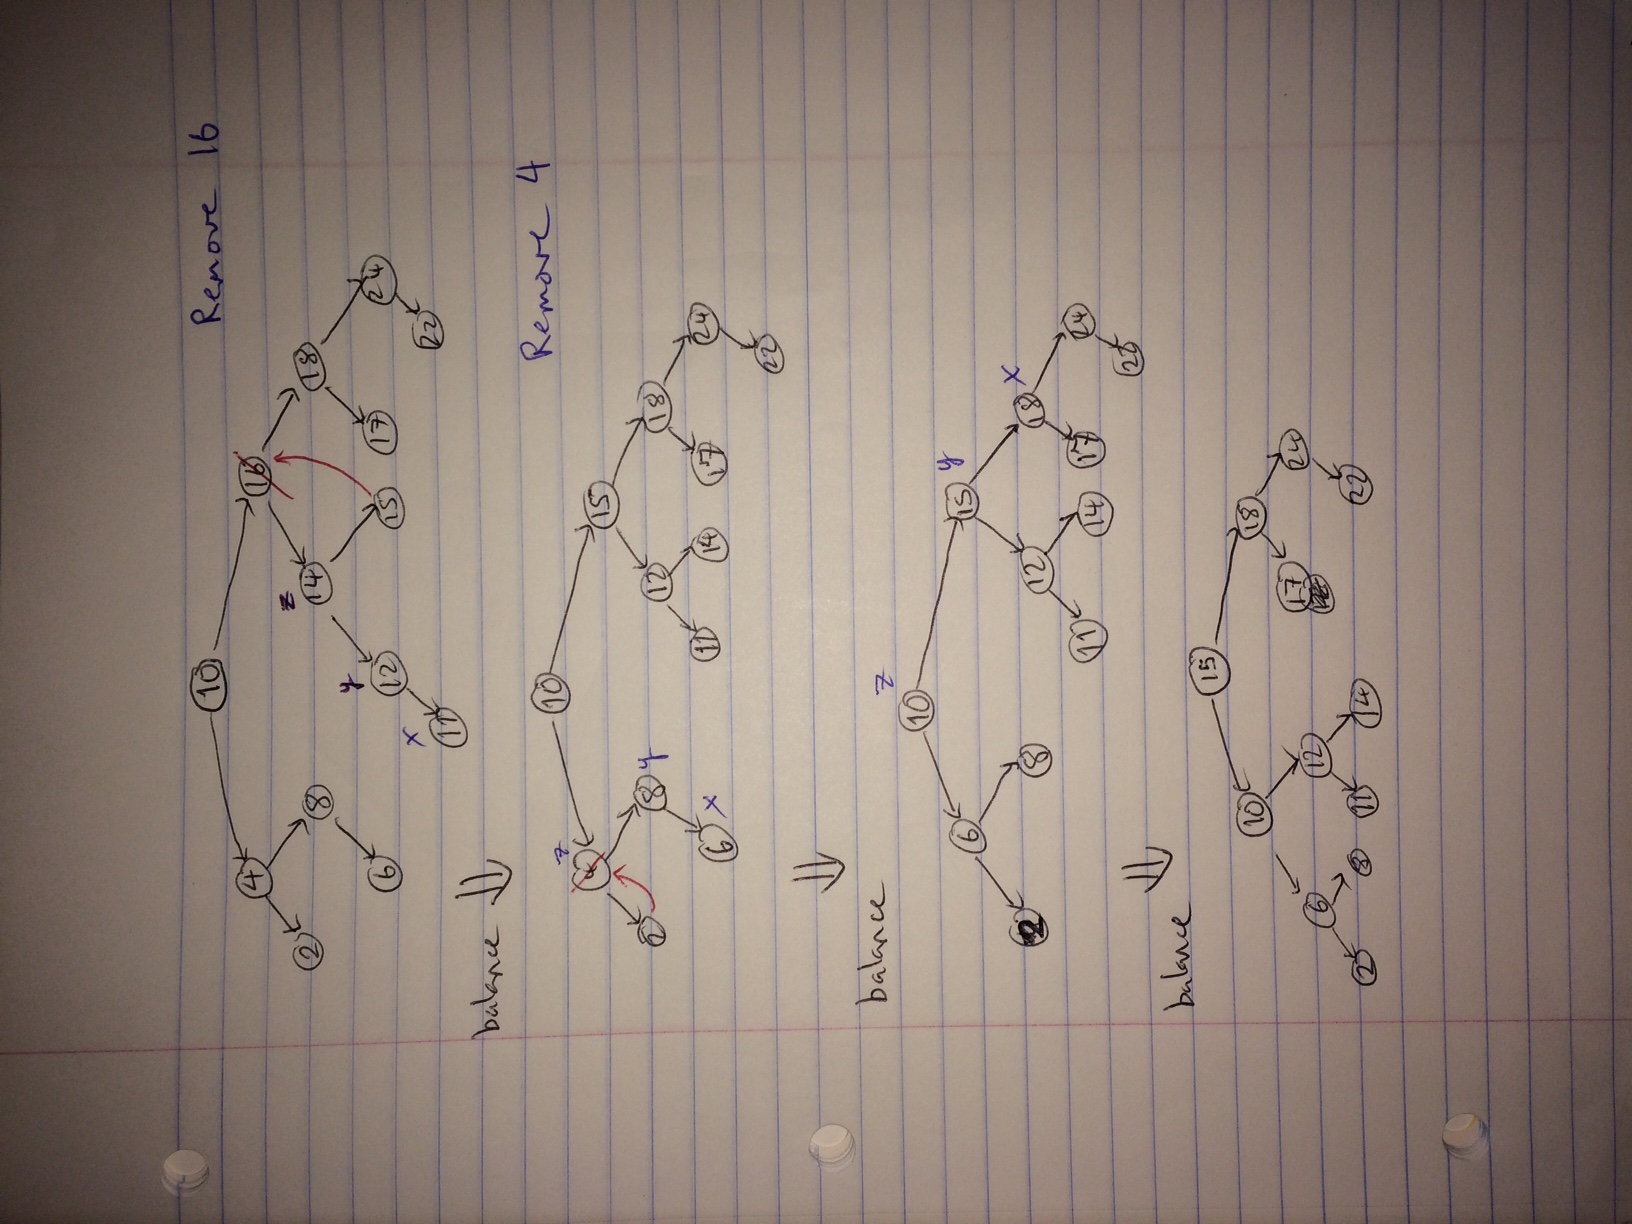 10 Remove 16
4 16
z
2 8 14 18
y
6 12 15 17 24
x
11 22
balance
10 Remove 4
z
4 15
2 8 y 12 18
6 x 11 14 17 24
22
balance
z
10
y
6 15
x
2 8 12 18
11 14 17 24
22
balance
15
10 18
6 12 17 24
2 8 11 14 22